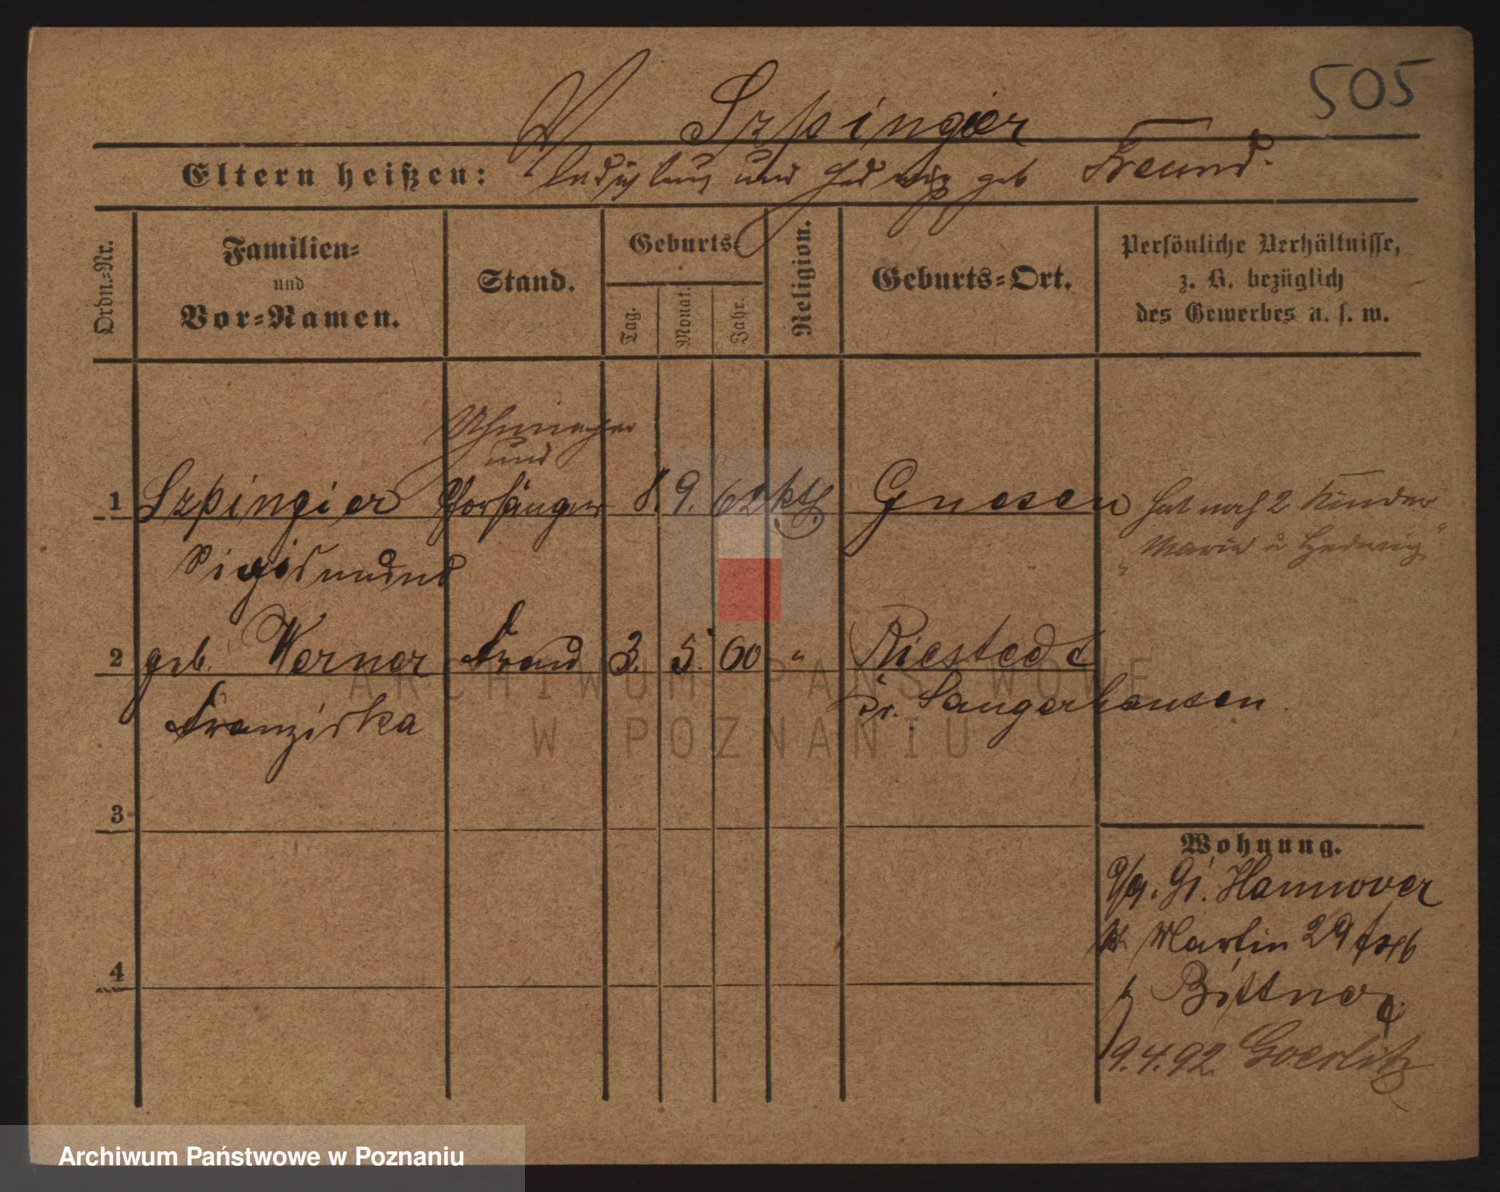 505
Szpingier
Eltern heißen: Wladislaus und Hedwig geb Freund.
Ordn.-Nr.
Familien-
und
Vor-Namen.
Stand.
Geburts-
Tag.
Monat.
Jahr.
Religion.
Geburts-Ort.
Persönliche Verhältnisse,
z. B. bezüglich
des Gewerbes u. s. w.
Uhrmacher
und
1 Szpingier 8. 9. 62 kth Gnesen hat noch 2 Kinder
Sigismund "Marie u Hedwig"
2 geb. Werner Frau 3. 5. 60 " Riestedt
Franziska Kr. Sangerhausen
3
Wohnung.
Hannover
St Martin 29
b Bittner
4
9.4.92 Goerlitz
ARCHIWUM PAŃSTWOWE
W POZNANIU
Archiwum Państwowe w Poznaniu